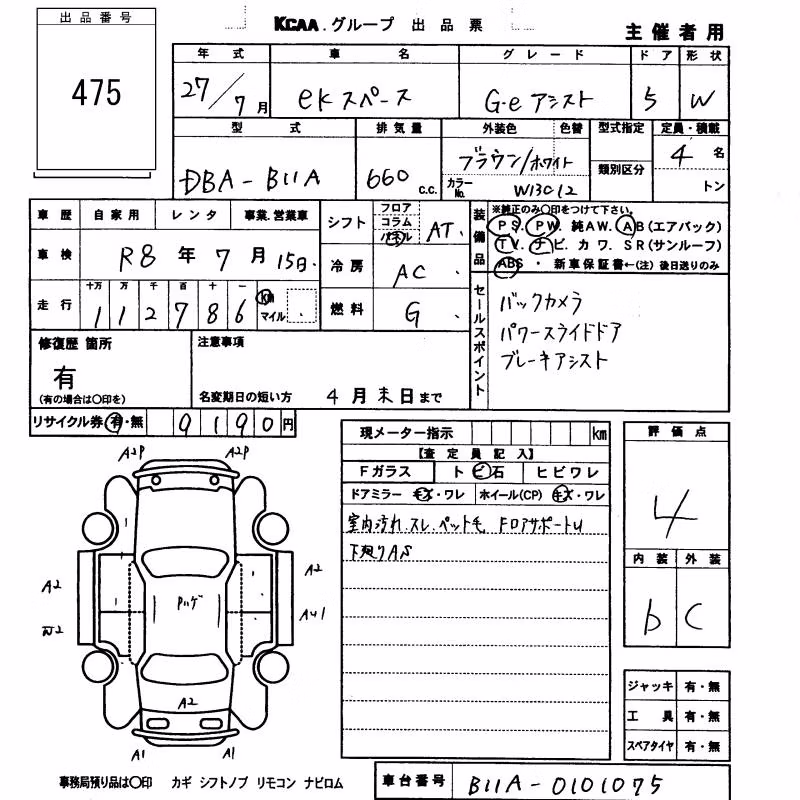 出品番号
475
KCAA.グループ 出品票
主催者用
年式 車名 グレード ドア 形状
27/7月 eKスペース G・eアシスト 5 W
型式 排気量 外装色 色替 型式指定 定員・積載
DBA-B11A 660c.c. ブラウン/ホワイト 類別区分 4名
カラーNo. W13C12 トン
車歴 自家用 レンタ 事業.営業車
車検 R8年7月15日
走行 十万 万 千 百 十 一
112786 km マイル
シフト フロア コラム パネル AT
冷房 AC
燃料 G
装備品 ※純正のみ○印をつけて下さい。
PS. PW. 純AW. AB(エアバック)
TV. ナビ. カワ. SR(サンルーフ)
ABS ・ 新車保証書←(注) 後日送りのみ
セールスポイント
バックカメラ
パワースライドドア
ブレーキアシスト
修復歴 箇所
有
(有の場合は○印を)
注意事項
名変期日の短い方 4月末日まで
リサイクル券 有・無 9190円
現メーター指示 km
【査定員記入】
Fガラス トビ石 ヒビワレ
ドアミラー キズ・ワレ ホイール(CP) キズ・ワレ
室内汚れ.スレ.ペット毛
下廻りAS
評価点
4
内装 外装
b C
ジャッキ 有・無
工具 有・無
スペアタイヤ 有・無
A2P A2P
A2 A2
A2
A1 A1
事務局預り品は○印 カギ シフトノブ リモコン ナビロム
車台番号 B11A-0101075